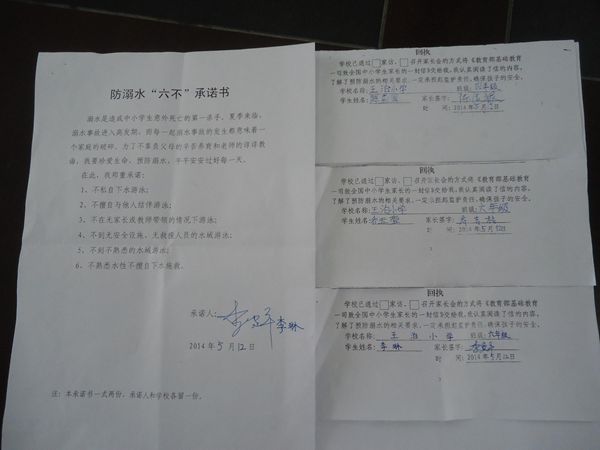 防溺水“六不”承诺书
溺水是造成中小学生意外死亡的第一杀手，夏季来临，
溺水事故进入高发期，而每一起溺水事故的发生都意味着一
个家庭的破碎。为了不辜负父母的辛苦养育和老师的谆谆教
诲，我要珍爱生命，预防溺水，平平安安过好每一天。
在此，我郑重承诺：
1、不私自下水游泳；
2、不擅自与他人结伴游泳；
3、不在无家长或教师带领的情况下游泳；
4、不到无安全设施、无救援人员的水域游泳；
5、不到不熟悉的水域游泳；
6、不熟悉水性不擅自下水施救。
承诺人：李琳
2014年5月12日
注：本承诺书一式两份，承诺人和学校各留一份。
回执
学校已通过□家访、□召开家长会的方式将《教育部基础教育
一司致全国中小学生家长的一封信》交给我，我认真阅读了信的内容，
了解了预防溺水的相关要求，一定承担起监护责任，确保孩子的安全。
学校名称：王冶小学 班级：六年级
学生姓名： 家长签字：
时间：2014年5月12日
回执
学校已通过□家访、□召开家长会的方式将《教育部基础教育
一司致全国中小学生家长的一封信》交给我，我认真阅读了信的内容，
了解了预防溺水的相关要求，一定承担起监护责任，确保孩子的安全。
学校名称：王冶小学 班级：六年级
学生姓名： 家长签字：
时间：2014年5月12日
回执
学校已通过□家访、□召开家长会的方式将《教育部基础教育
一司致全国中小学生家长的一封信》交给我，我认真阅读了信的内容，
了解了预防溺水的相关要求，一定承担起监护责任，确保孩子的安全。
学校名称：王冶小学 班级：六年级
学生姓名：李琳 家长签字：
时间：2014年5月12日